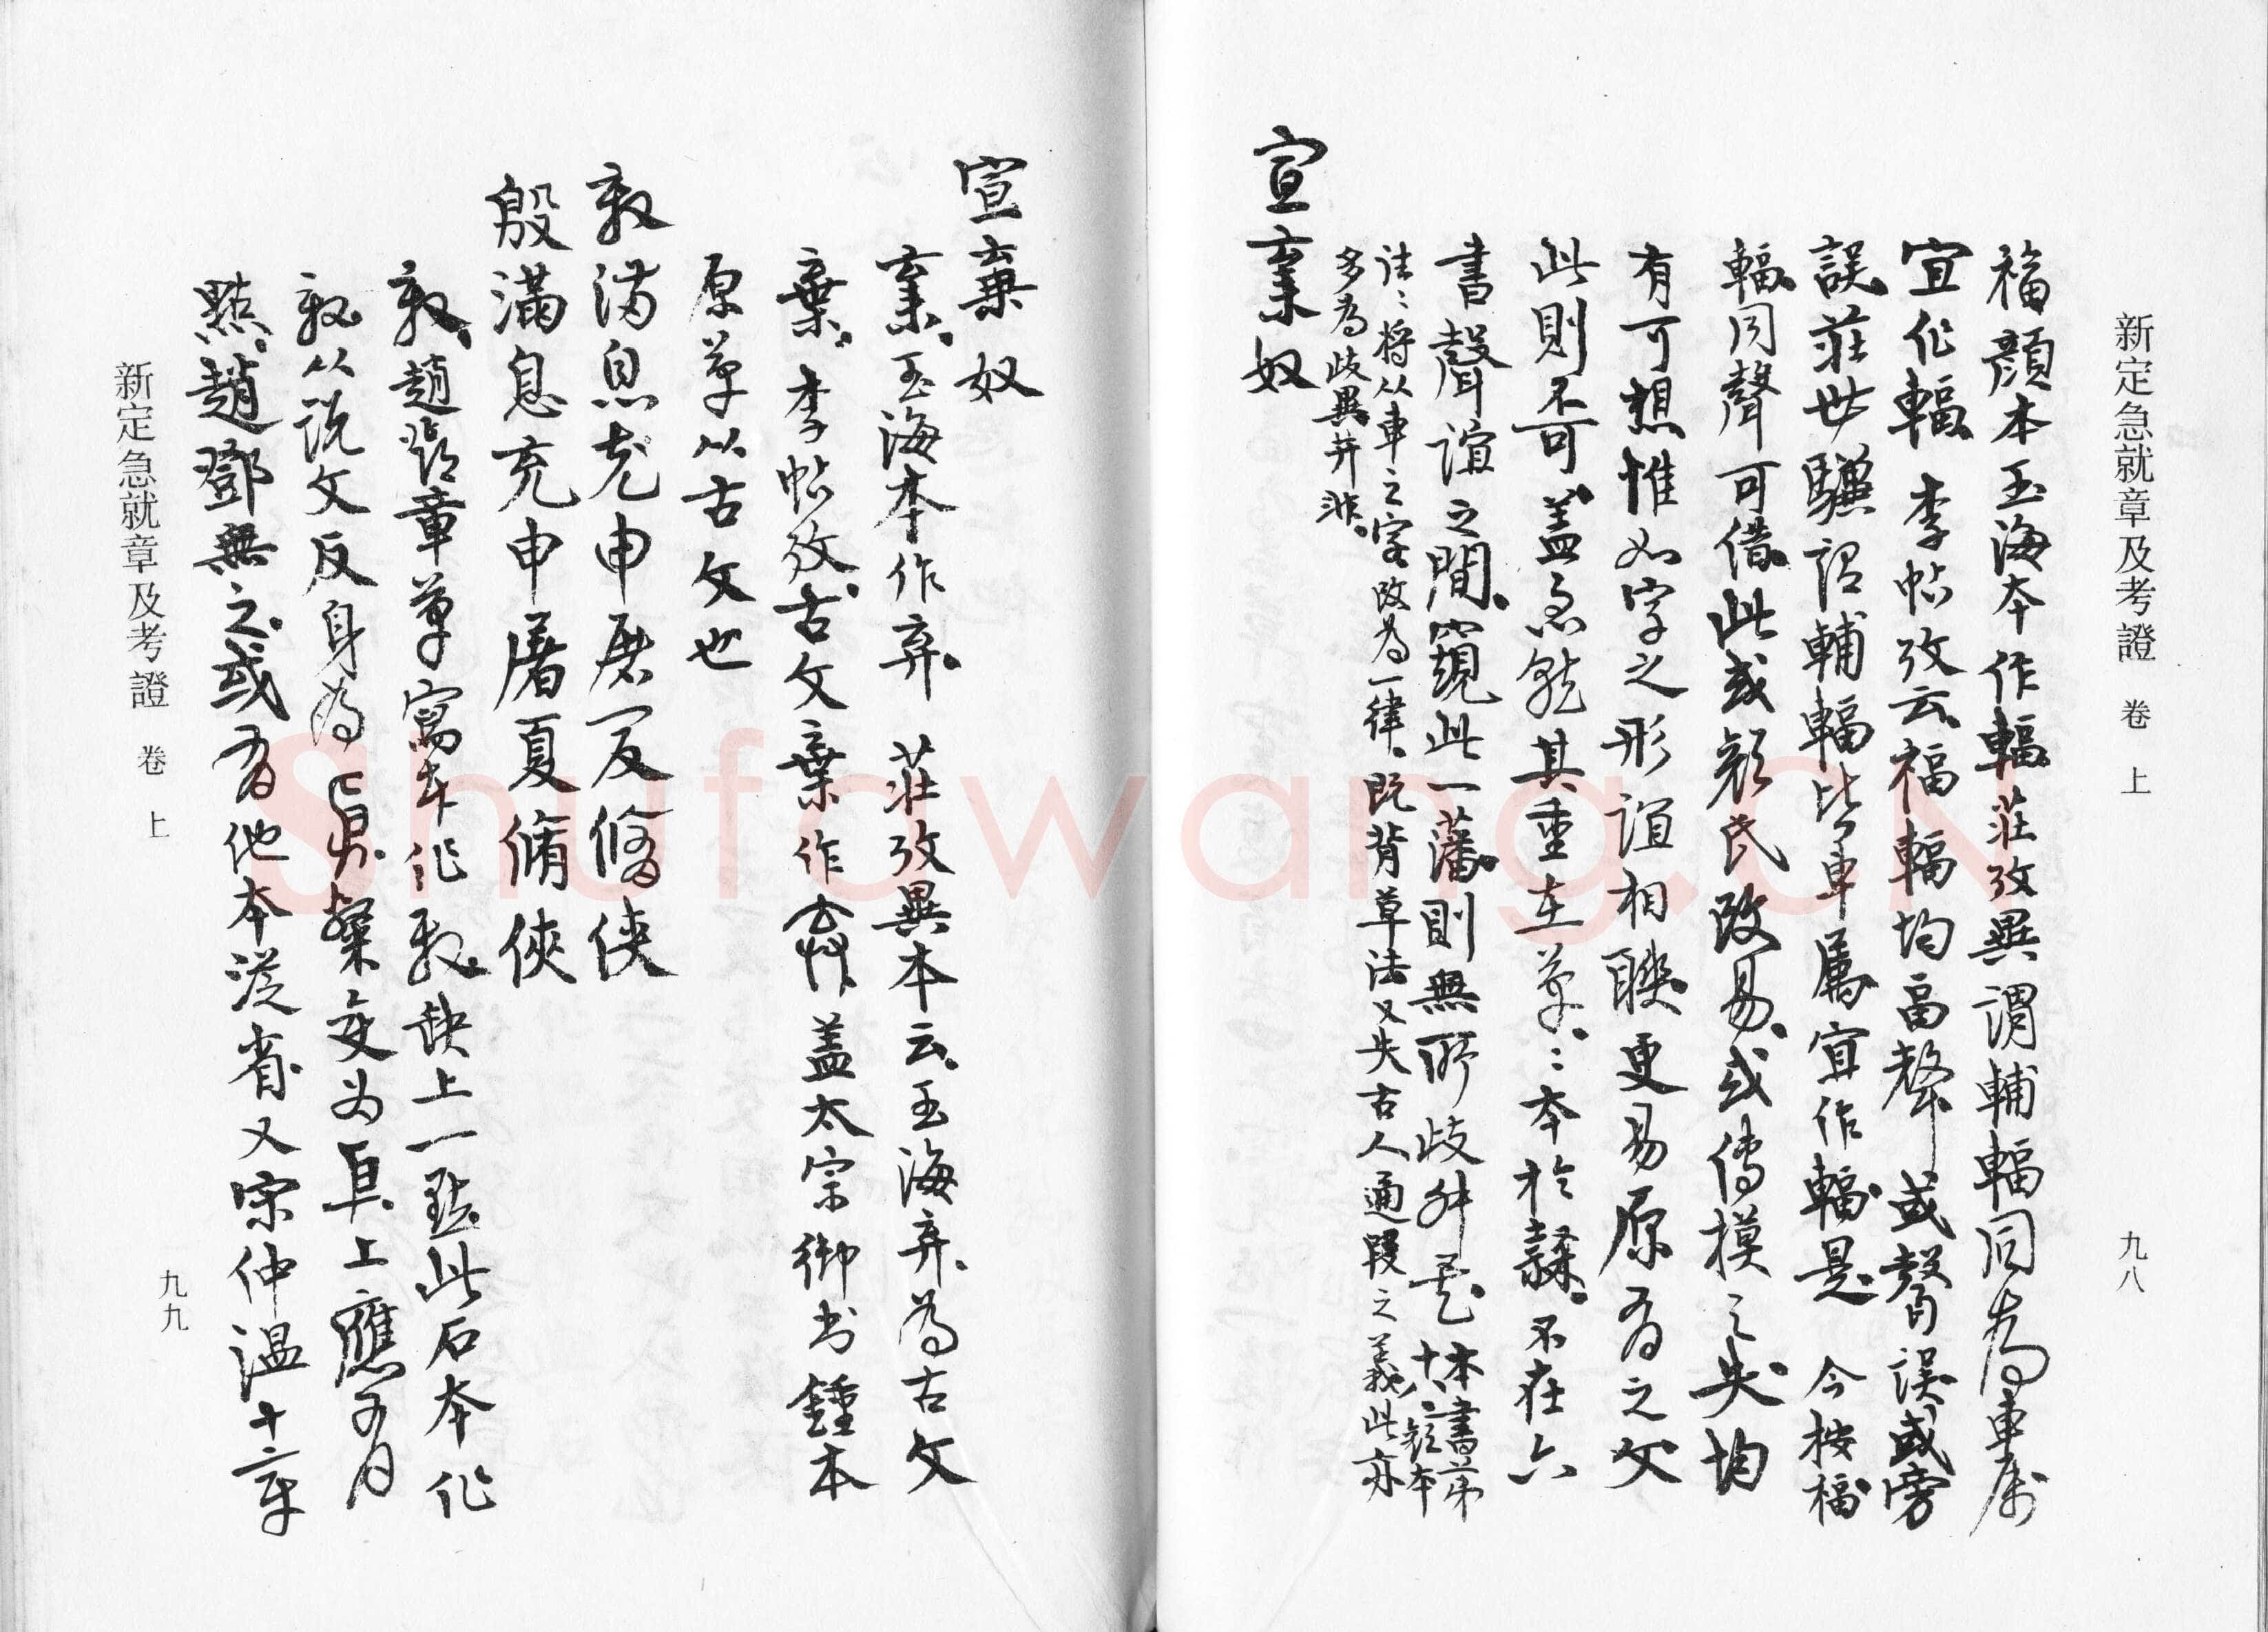 新定急就章及考證 卷上 九八
福顏本玉海本作輻莊攷異謂輔輻同為車屬
宜作輻 李帖攷云福輻均畐聲 或聲誤或旁
誤莊世驥謂輔輻皆車屬宜作輻是 今按福
輻同聲可借此或顏氏改易或傳模之失均
有可想惟如字之形誼相聯更易原有之文
此則不可蓋急就其重在草〻本於隸不在六
書聲誼之間窺此一藩則無所歧舛矣本書第
十八顏本
往〻將从車之字改為一律既背草法又失古人通叚之義此亦
多為歧異并非
宣棄奴
宣棄奴
棄玉海本作弃 莊攷異本云玉海弃為古文
棄李帖攷古文棄作𠔉蓋太宗御書鍾本
原草以古文也
敦滿息充申屠夏脩俠
殷滿息充申屠夏脩俠
敦趙臨章草寫本作敦缺上一點此石本作
敦从說文反身為㐆隸變為㐆上應有
點趙鄧無之或有他本從省又宋仲溫十章
新定急就章及考證 卷上 九九
Shufawang.CN